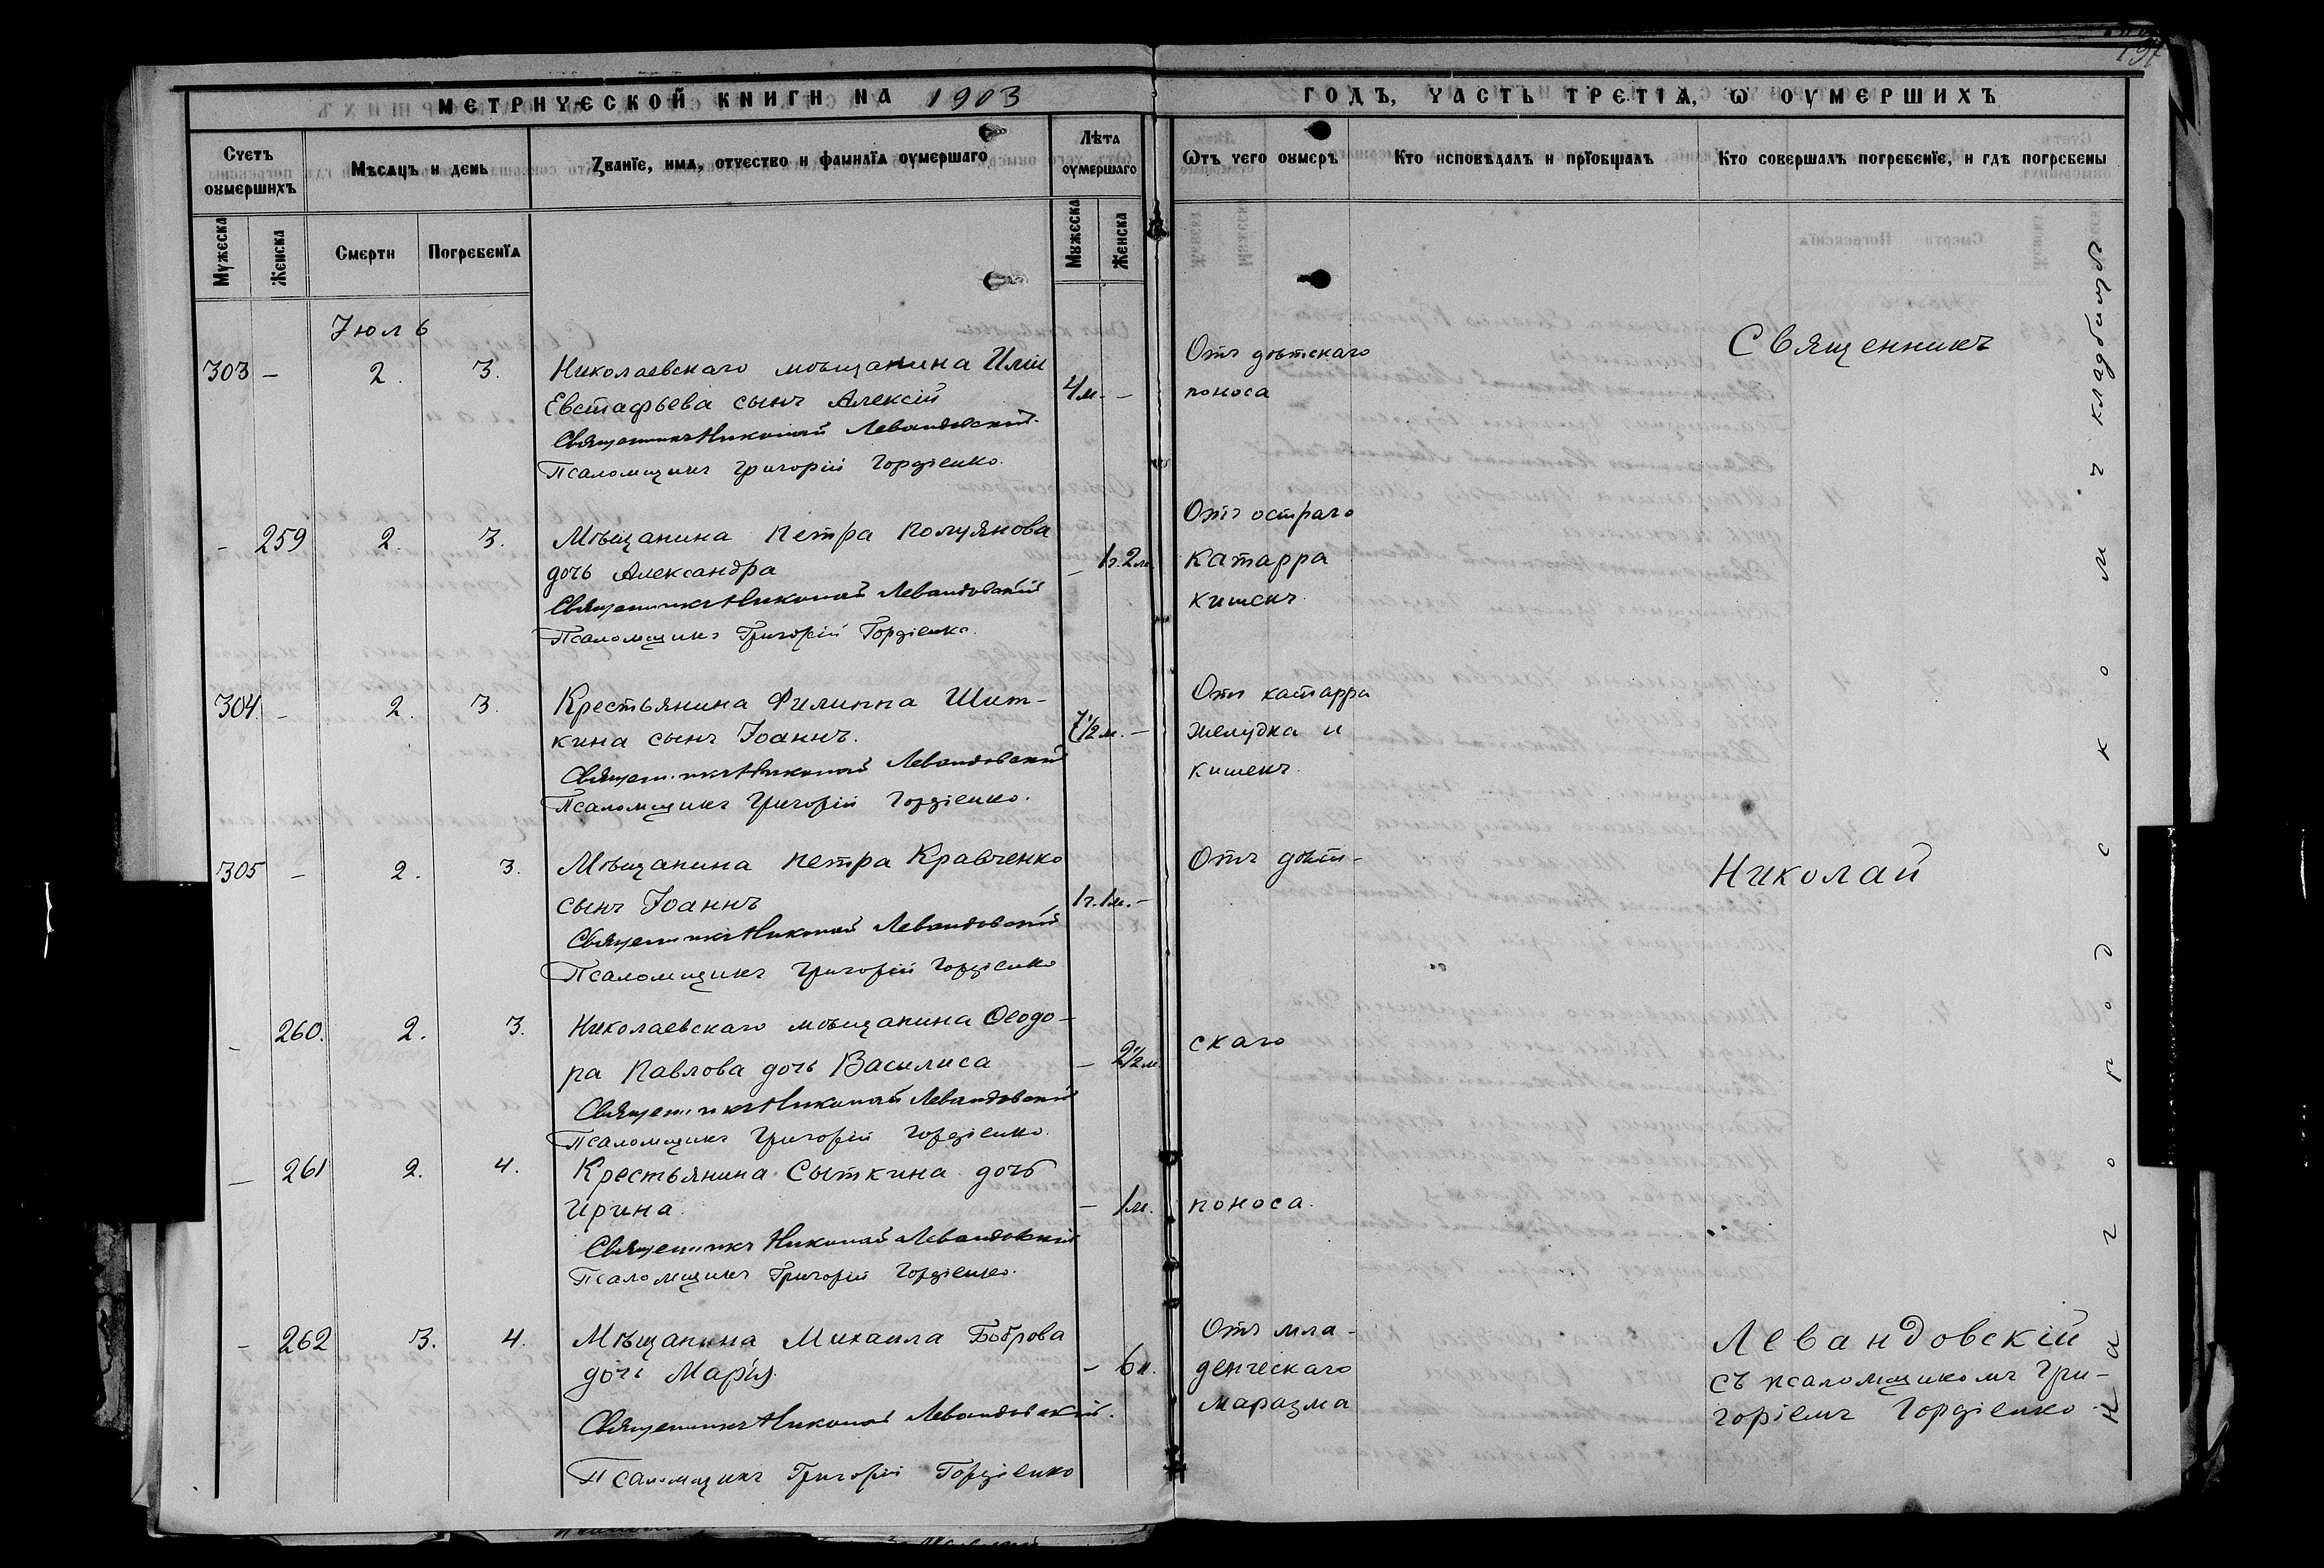 МЕТРИЧЕСКОЙ КНИГИ НА 1903
ГОДЪ, ЧАСТЬ ТРЕТІѦ, Ѡ ОУМЕРШИХЪ
Счетъ оумершихъ
Мѣсѧцъ и день
Званїе, имѧ, отчество и фамилїѧ оумершаго
Лѣта оумершаго
Ѿтъ чего оумеръ
Кто исповѣдалъ и прїобщалъ
Кто совершалъ погребенїе, и гдѣ погребены
Мужеска
Женска
Смерти
Погребенїѧ
Мужеска
Женска
Іюль
303 - 2. 3. Николаевскаго мѣщанина Иліи
Евстафьева сынъ Алексій
4м. -
Отъ дѣтскаго
поноса
Священникъ Николай Левандовскій
Псаломщикъ Григорій Гордіенко.
- 259 2. 3. Мѣщанина Петра Полуянова
дочь Александра
- 1г.2м.
Отъ остраго
катарра
кишекъ.
Священникъ Николай Левандовскій
Псаломщикъ Григорій Гордіенко.
304. - 2. 3. Крестьянина Филиппа Шит-
кина сынъ Іоаннъ.
7½м. -
Отъ катарра
желудка и
кишекъ.
Священникъ Николай Левандовскій
Псаломщикъ Григорій Гордіенко.
305 - 2. 3. Мѣщанина Петра Кравченко
сынъ Іоаннъ
1г.1м. -
Отъ дѣт-
Священникъ Николай Левандовскій
Псаломщикъ Григорій Гордіенко
- 260. 2. 3. Николаевскаго мѣщанина Ѳеодо-
ра Павлова дочь Василиса
- 2½м.
скаго
Священникъ Николай Левандовскій
Псаломщикъ Григорій Гордіенко.
- 261 2. 4. Крестьянина Сыткина дочь
Ирина.
- 1м.
поноса.
Священникъ Николай Левандовскій
Псаломщикъ Григорій Гордіенко.
- 262 3. 4. Мѣщанина Михаила Боброва
дочь Марія.
Отъ мла-
денческаго
маразма
Священникъ Николай Левандовскій.
Псаломщикъ Григорій Гордіенко
Священникъ
Николай
Левандовскій
съ псаломщикомъ Гри-
горіемъ Гордіенко
на городскомъ кладбищѣ